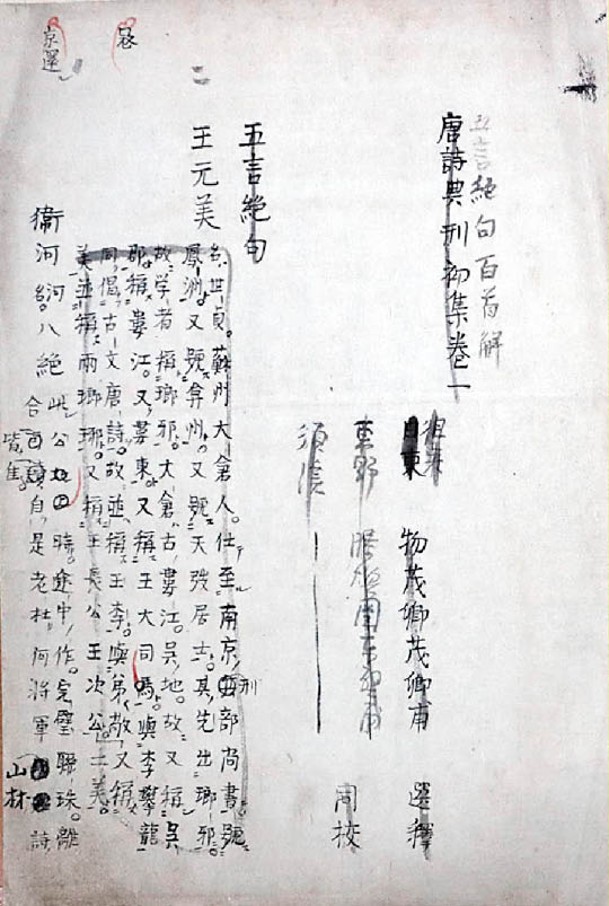 五言絶句百首解
唐詩典刑初集卷一
徂來
日東 物茂卿茂卿甫 選釋
東野
同校
五言絶句
王元美
名世貞。蘇州大倉人。仕至南京刑部尚書。號
鳳洲。又號弇州。又號天弢居士。其先出瑯邪。
故学者稱瑯邪。大倉古婁江。吳地。故又稱吳
郡。稱婁江。又婁東。又稱王大司馬。與李攀龍
同倡古文唐詩。故並稱王李。與弟敬又稱
美並稱兩瑯琊。又稱王長公王次公。二美。
衛河河名。八絶 此公 時。途中作。完璧聯珠。離
合皆自是老杜。何將軍山林詩
皆隹。
京選